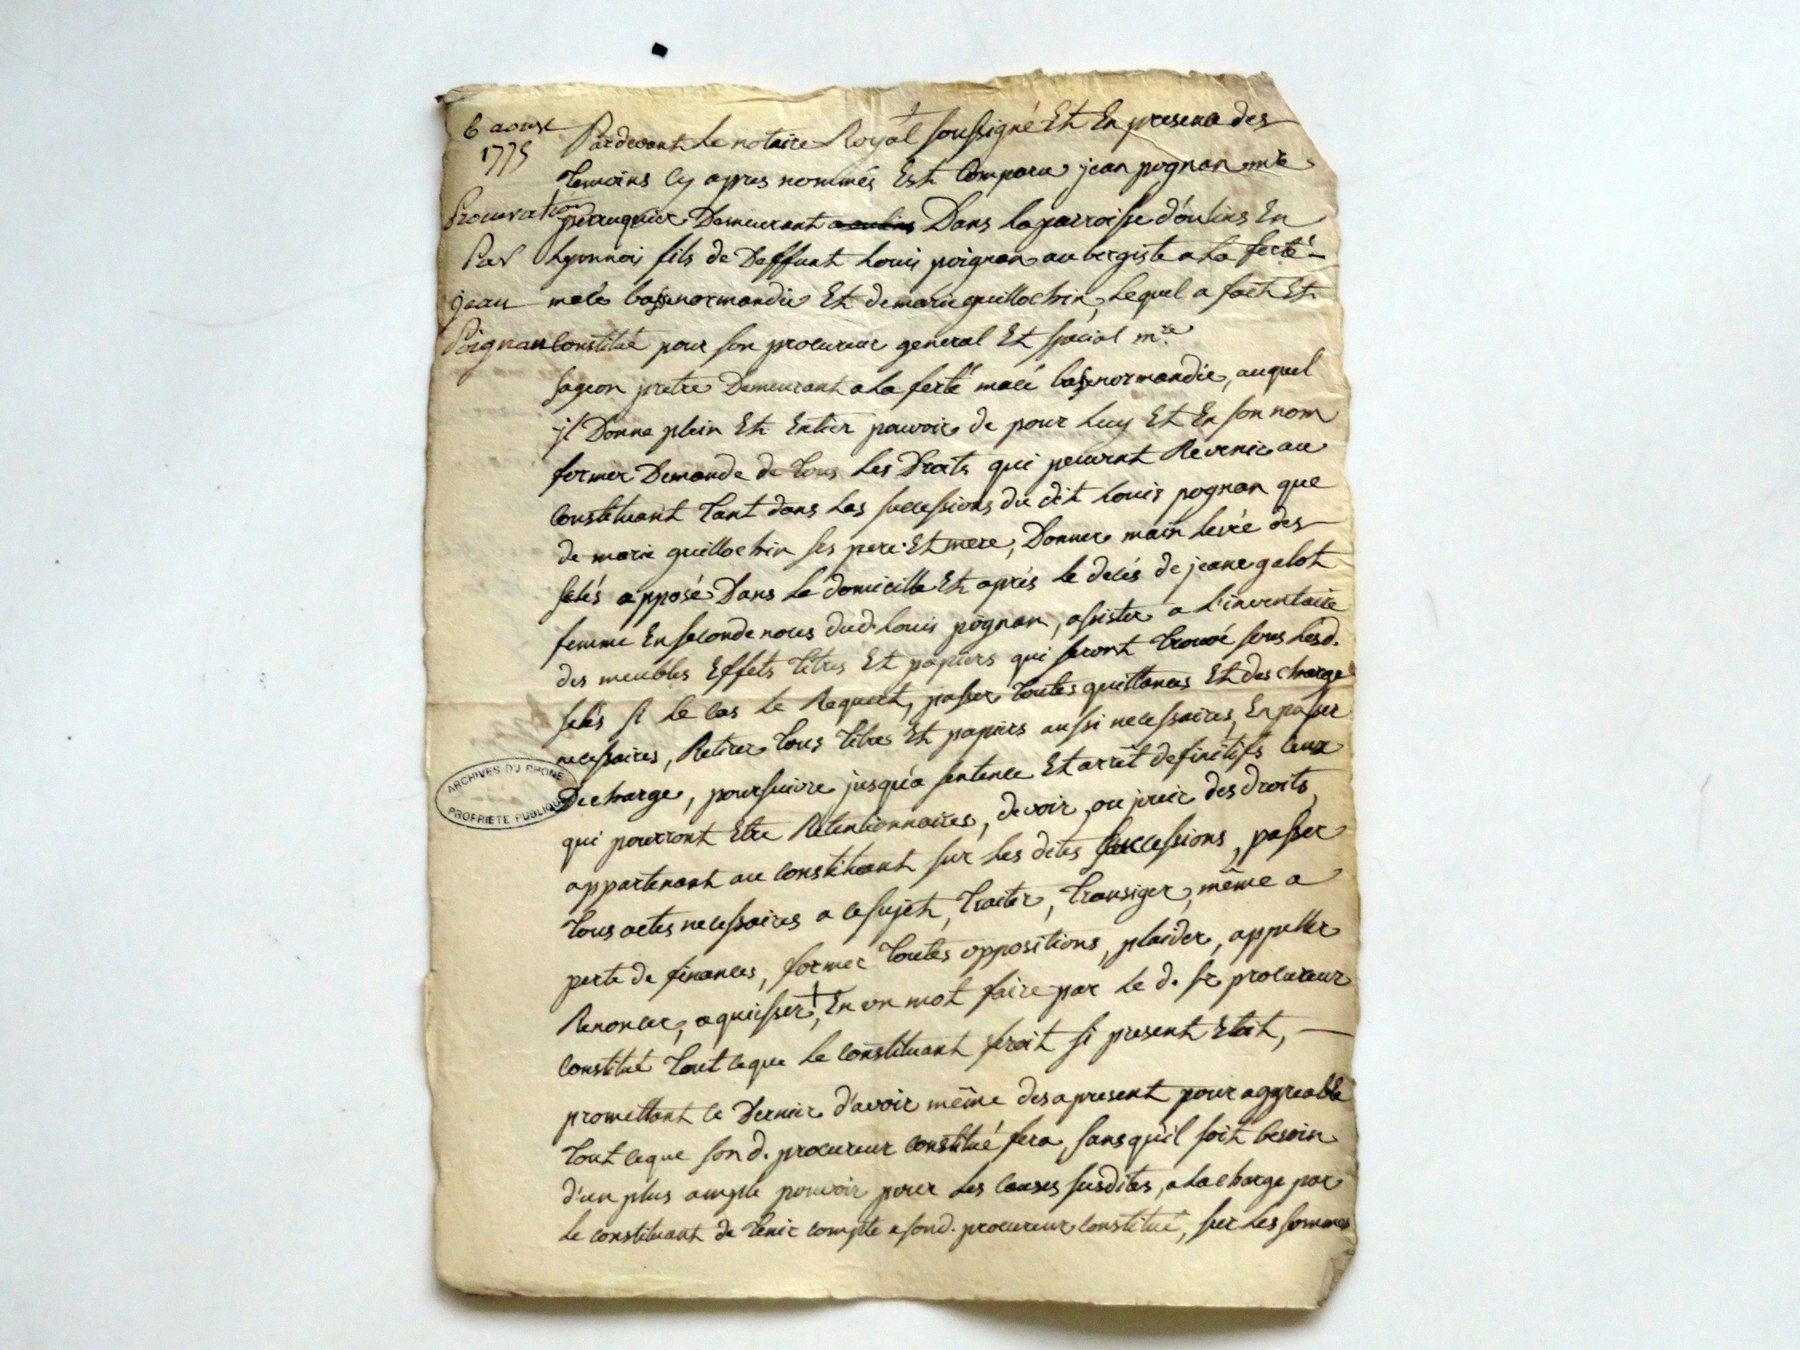 6 aoust
1775
Procuration
Par
jean
Poignan
Pardevant Le notaire Royal soussigné Et En presence des
temoins Cy apres nommés Est Comparu jean pognan mtre
perruquier Demeurant a oulins Dans la parroisse d'oulins En
Lyonnois fils de Deffunt Louis poignan aubergiste a La ferté
macé basse normandie Et de marie guillochin, Lequel a fait Et
Constitué pour son procureur general Et special mre
sageon pretre Demeurant a La ferté macé basse normandie, auquel
jl Donne plein Et Entier pouvoir de pour Luy Et En son nom
former Demande de tous Les Droits qui peuvent Revenir au
Constituant tant dans Les successions du dit Louis pognan que
de marie guillochin ses pere Et mere, Donner main Levée des
selés apposé Dans Le domicille Et aprés le decés de jeane galot
femme En seconde noces dud. Louis pognan, asister a L'inventaire
des meubles Effets titres Et papiers qui seront trouvé sous Lesd.
selés si Le Cas Le Requert, passer toutes quittances Et des charge
necessaires, Retirer tous titres Et papiers aussi necessaires, En passer
Decharge, poursuivre jusqu'a sentence Et arrêt definitifs Ceux
qui pourront Etre Retentionnaires, devoir, ou jouir des droits,
appartenant au Constituant sur Les dites successions, passer
tous actes necessaires a ce sujet, traiter, transiger, même a
perte de finances, former toutes oppositions, plaider, appeller
Renoncer, aquiesser +, En un mot faire par Le d. sr procureur
Constitué tout ce que Le Constituant feroit si present Etoit,
promettant Ce Dernier d'avoir même des a present pour aggreable
tout ce que son d. procureur constitué fera, sans qu'il soit besoin
d'un plus ample pouvoir pour Les Causes susdites, a La charge par
Le constituant de tenir compte a sond. procureur constitué, sur Les sommes
ARCHIVES DU RHONE
PROPRIETE PUBLIQUE